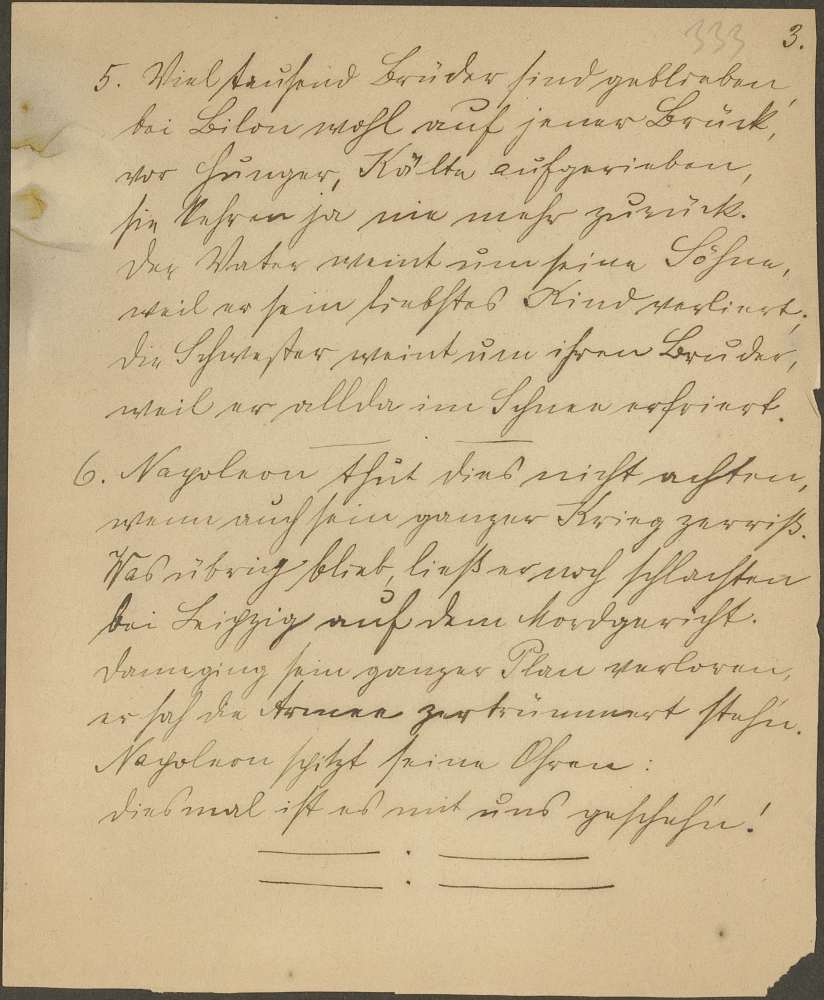 333 3.
5. Viel tausend Brüder sind geblieben,
bei Bilon wohl auf jener Brück,
vor Hunger, Kälte aufgerieben,
sie kehren ja nie mehr zurück.
Der Vater weint um seine Söhne,
weil er sein liebstes Kind verliert;
die Schwester weint um ihren Bruder,
weil er allda im Schnee erfriert.
6. Napoleon thut dies nicht achten,
wenn auch sein ganzer Krieg zerriß.
Was übrig blieb, ließ er noch schlachten
bei Leipzig auf dem Mordgericht.
Dann ging sein ganzer Plan verloren,
er sah die Armee zertrümmert steh'n.
Napoleon spitzt seine Ohren:
diesmal ist es mit uns gescheh'n!